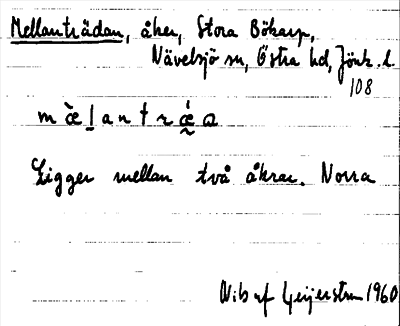 Mellanträdan, åker, Stora Bökarp,
Nävelsjö sn, Östra hd, Jönk. l.
108
m æ̀ l a n t r ǽ a
Ligger mellan två åkrar. Norra
Nils af Geijerstam 1960